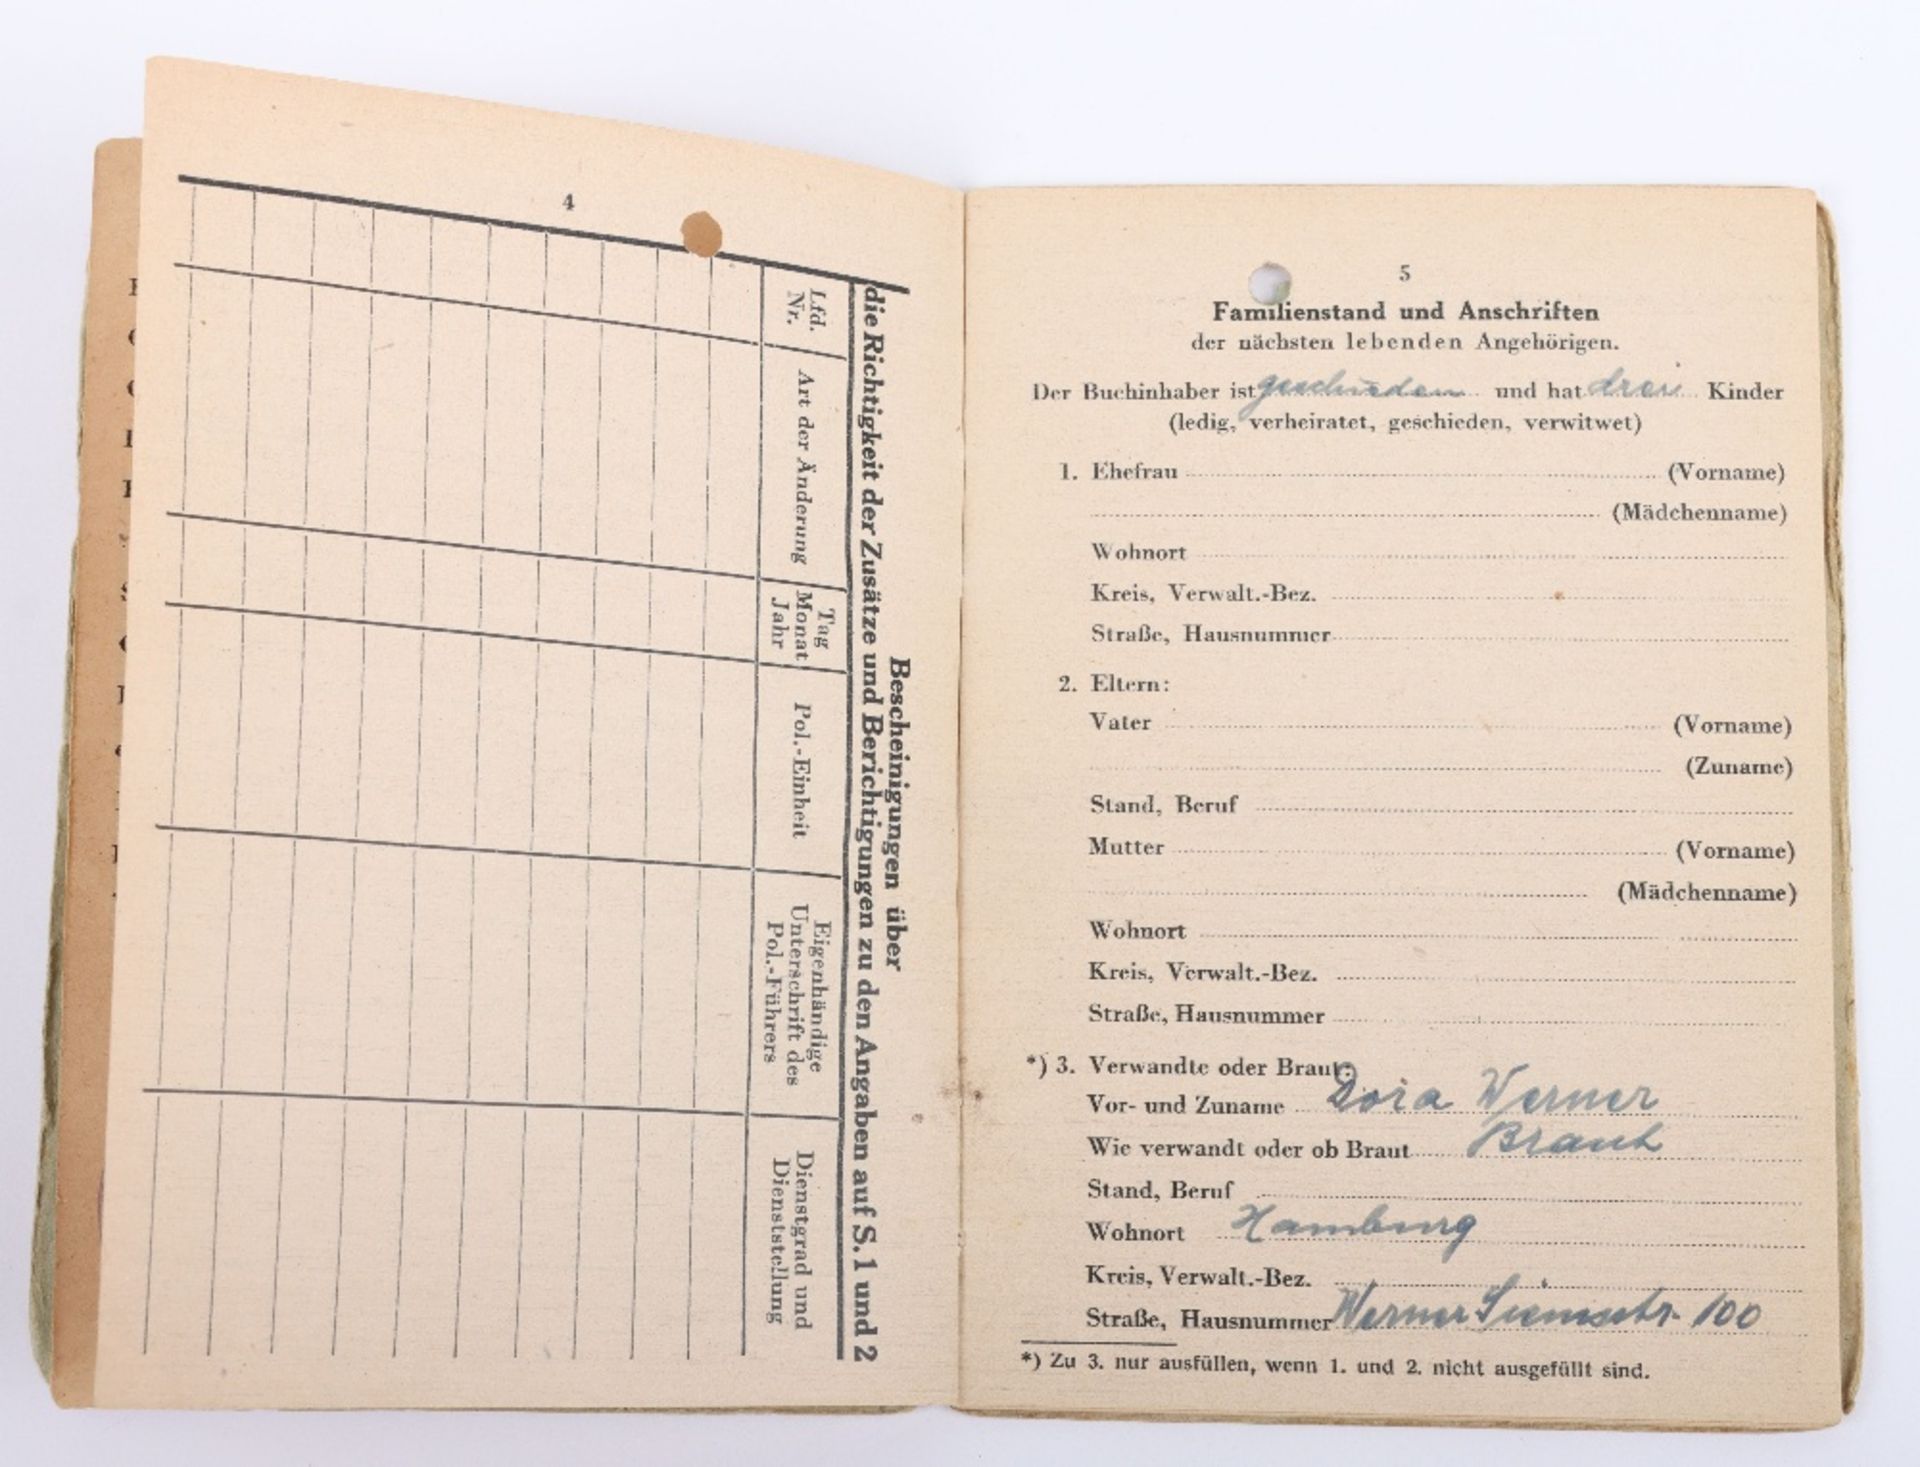 4
Bescheinigungen über
die Richtigkeit der Zusätze und Berichtigungen zu den Angaben auf S. 1 und 2
Lfd.
Nr.
Art der Änderung
Tag
Monat
Jahr
Pol.-Einheit
Eigenhändige
Unterschrift des
Pol.-Führers
Dienstgrad und
Dienststellung
5
Familienstand und Anschriften
der nächsten lebenden Angehörigen.
Der Buchinhaber ist geschieden und hat drei Kinder
(ledig, verheiratet, geschieden, verwitwet)
1. Ehefrau (Vorname)
(Mädchenname)
Wohnort
Kreis, Verwalt.-Bez.
Straße, Hausnummer
2. Eltern:
Vater (Vorname)
(Zuname)
Stand, Beruf
Mutter (Vorname)
(Mädchenname)
Wohnort
Kreis, Verwalt.-Bez.
Straße, Hausnummer
*) 3. Verwandte oder Braut:
Vor- und Zuname Dora Werner
Wie verwandt oder ob Braut Braut
Stand, Beruf
Wohnort Hamburg
Kreis, Verwalt.-Bez.
Straße, Hausnummer Werner Siemsstr. 100
*) Zu 3. nur ausfüllen, wenn 1. und 2. nicht ausgefüllt sind.